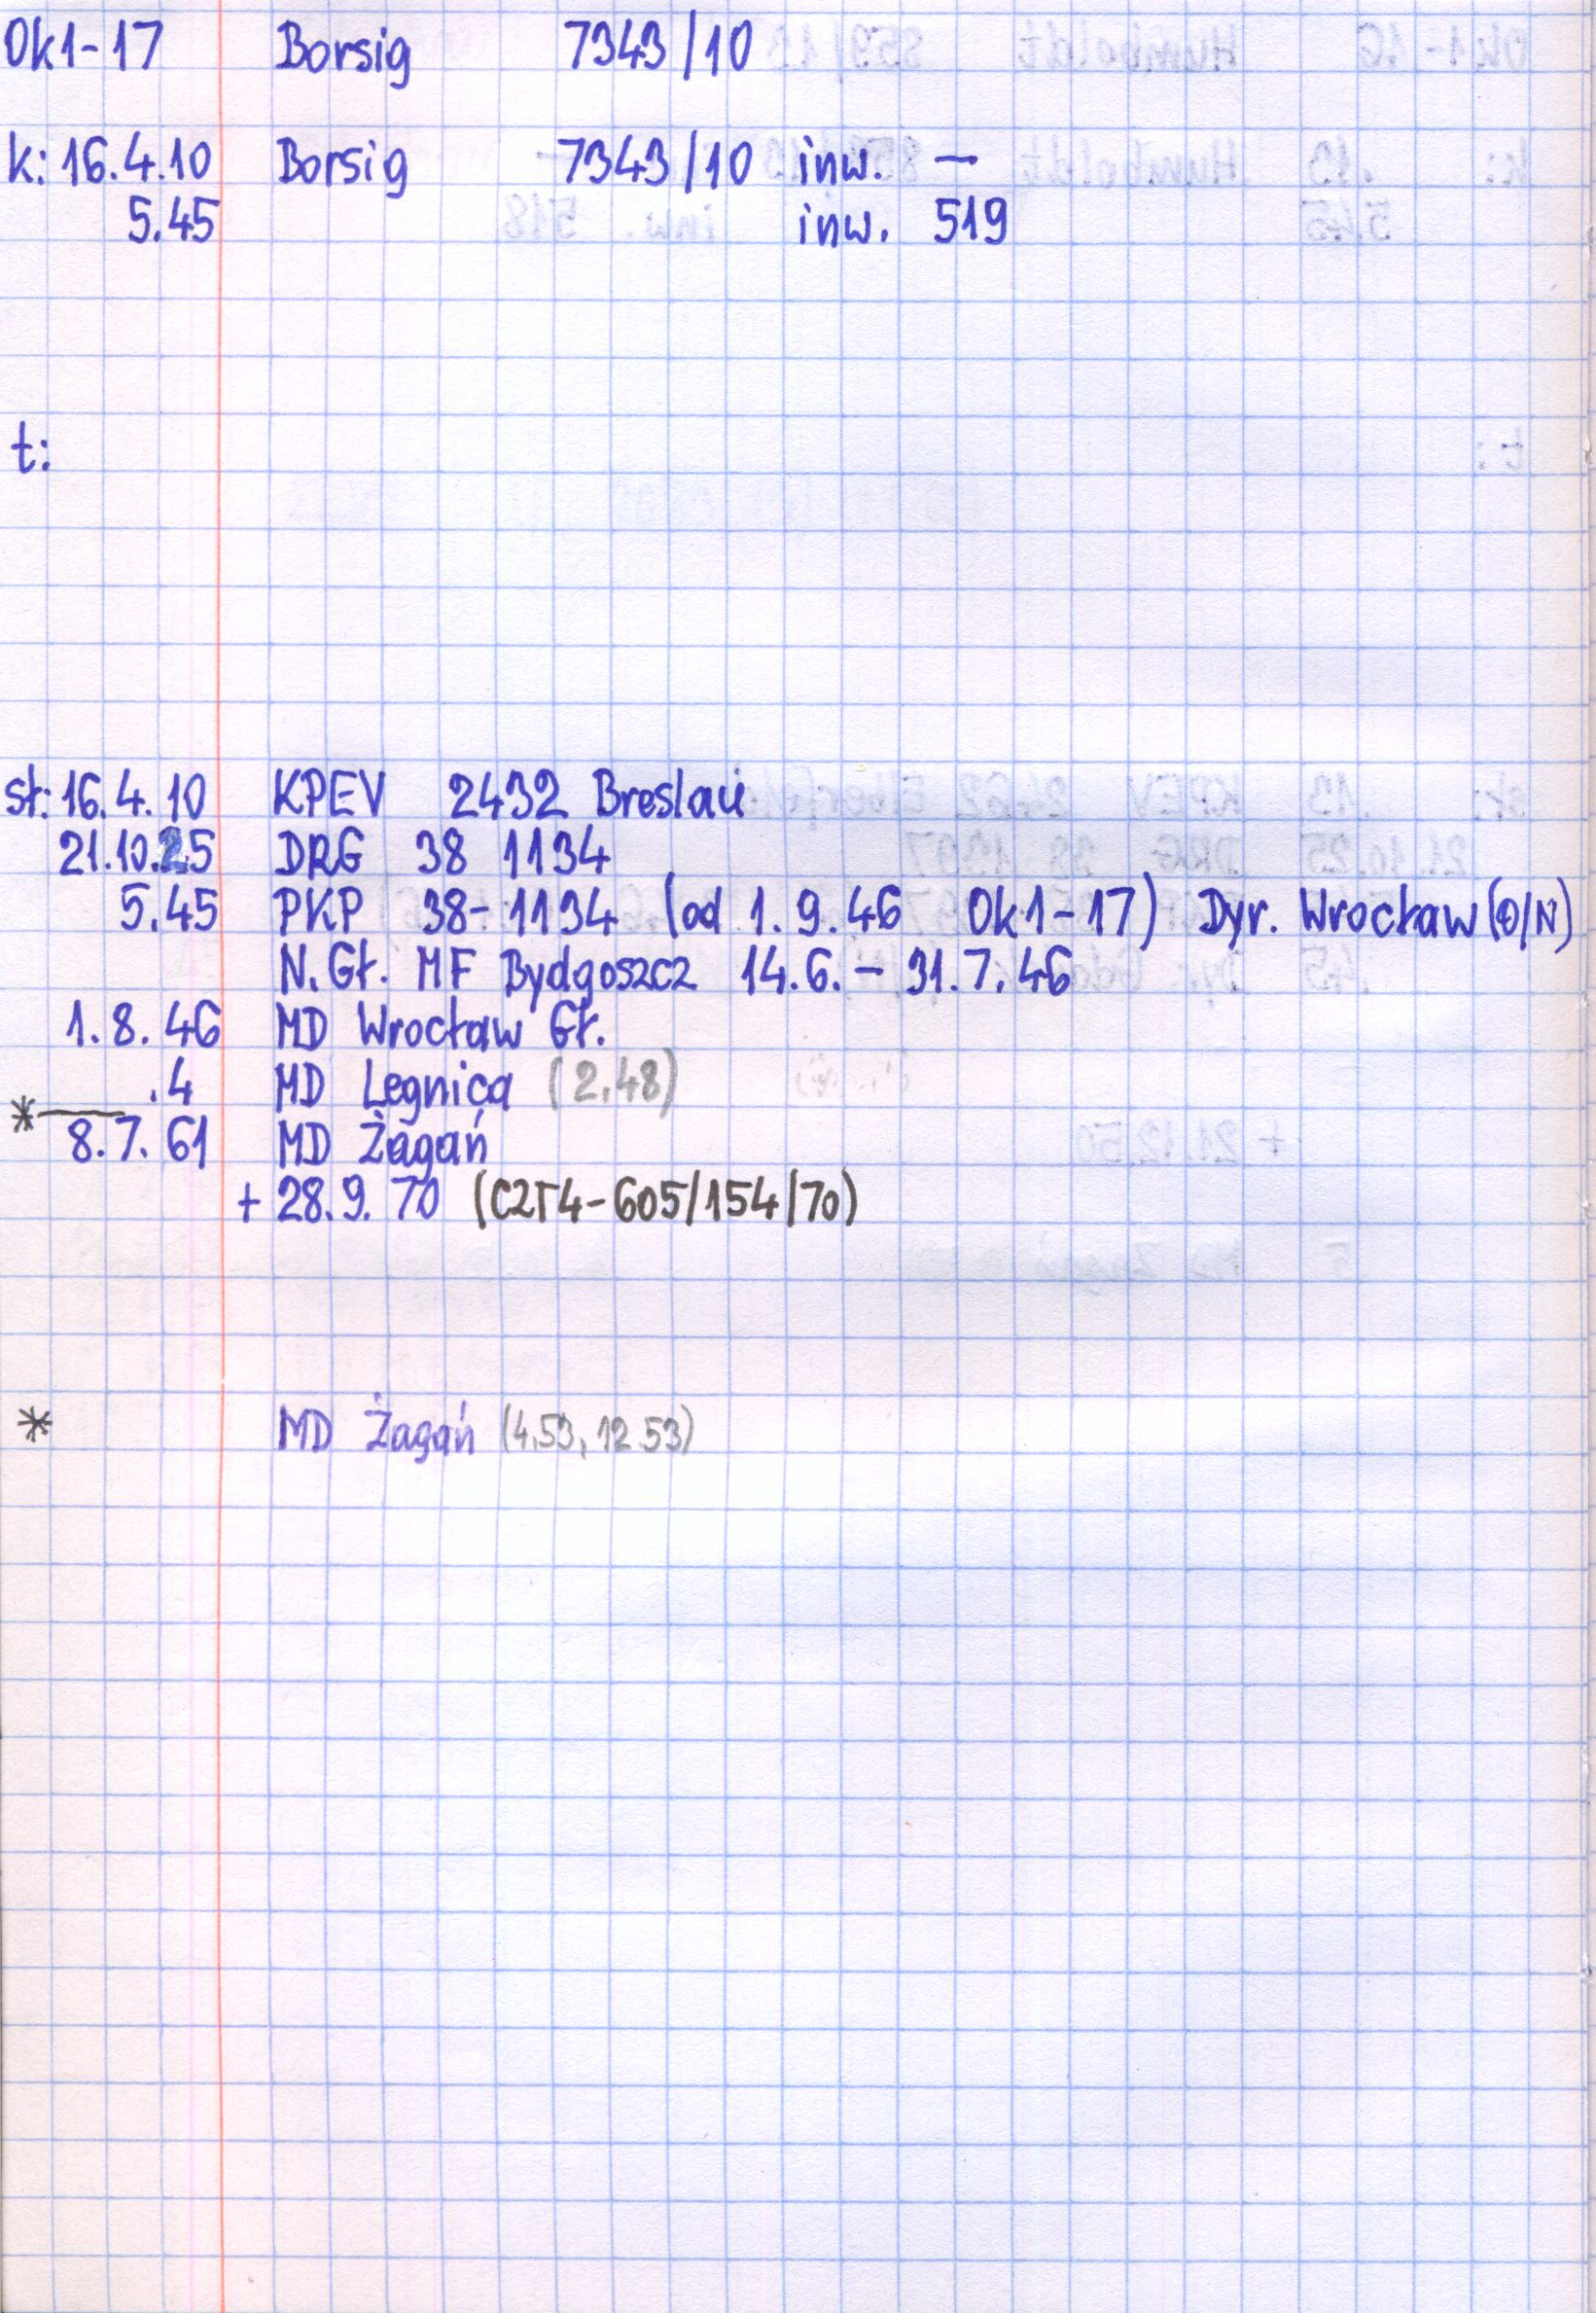 Ok1-17 Borsig 7343/10
k: 16.4.10 Borsig 7343/10 inw. —
5.45 inw. 519
t:
st: 16.4.10 KPEV 2432 Breslau
21.10.25 DRG 38 1134
5.45 PKP 38-1134 (od 1.9.46 Ok1-17) Dyr. Wrocław (O/N)
N.Gł. MF Bydgoszcz 14.6. – 31.7.46
1.8.46 MD Wrocław Gł.
.4 MD Legnica (2.48)
*
8.7.61 MD Żagań
+ 28.9.70 (C2T4-605/154/70)
* MD Żagań (4.53, 12.53)